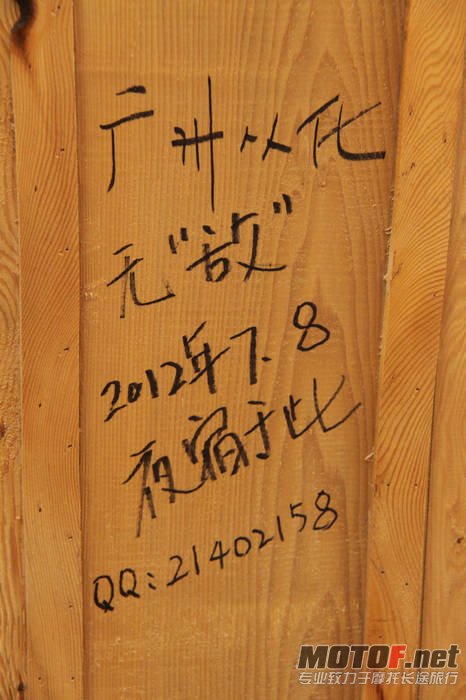 广州从化
无"敌"
2012年7.8
夜宿于此
QQ:21402158
MOTOF.net
专业致力于摩托长途旅行